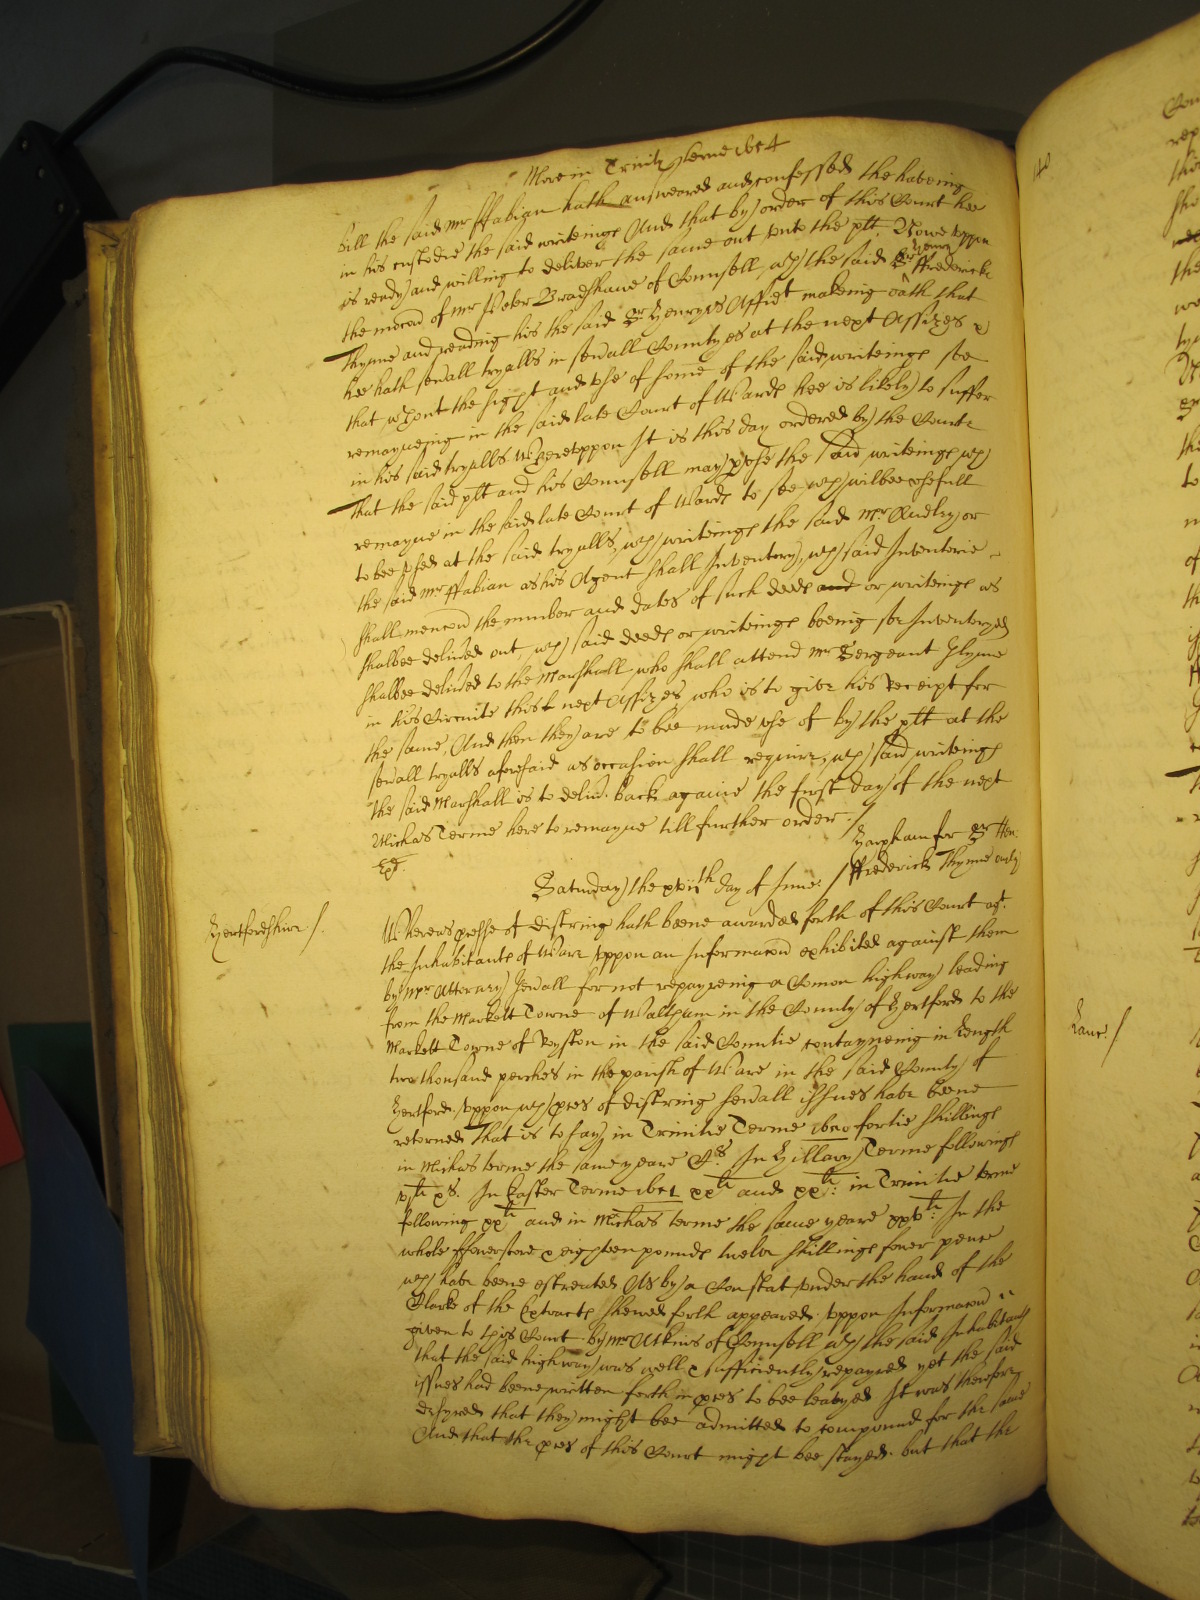 More in Trinity Terme 1654
bill the said Mr ffabian hath answeared and confessed the haveing
in his custodie the said writeings And that by order of this Court hee
is ready and willing to deliver the same out unto the plt. Nowe uppon
the mocon of Mr Peter Bradshawe of Counsell wth the said Sr Henry ffrederick
Thynne and reading his the said Sr Henryes Affidt makeing oath that
hee hath sevall tryalls in sevall Countyes at the next Assizes &
that wthout the sight and use of some of the said writeings soe
remayneing in the said late Court of Wards hee is likely to suffer
in his said tryalls Whereuppon It is this day ordered by the Courte
That the said plt and his Counsell may pvse the said writeings wch
remayne in the said late Court of Wards to see wch wilbee usefull
to bee used at the said tryalls, wch writeings the said Mr Audley or
the said Mr ffabian as his Agent shall Inventory, wch said Inventorie
shall mencon the number and dates of such deeds and or writeings as
shalbee delived out wch said deeds or writeings beeing soe Inventoryed
shalbee delived to the Marshall who shall attend Mr Sergeant Glynne
in his Circuite this next Assizes who is to give his receipt for
the same, And then they are to bee made use of by the plt at the
sevall tryalls aforesaid as occasion shall require, wch said writeings
the said Marshall is to delivr back againe the first day of the next
Michas Terme here to remayne till further order /
Harpham for Sr Hen:
ffrederick Thynne only
Saturday the xviith day of June /
Hertfordshire /
Whereas pcesse of distring hath beene awarded forth of this Court agt
the Inhabitants of Ware uppon an Informacon exhibited against them
by Mr Attorney Genall for not repayreing a Comon highway leading
from the Markett Towne of Waltham in the County of Hertford to the
Markett Towne of Royston in the said Countie contayneing in Length
two thousand perches in the parish of Ware in the said County of
Hertford. uppon wch pces of distring sevall issues have beene
retorned That is to say, in Trinitie Terme 1650 fortie shillings
in Michas terme the same yeare In Hillary Terme followinge
vli xs. In Easter Terme 1651 xxli and xxli: in Trinitie terme
following xxli and in Michas terme the same yeare xxvli: In the
whole ffowerscore & eighteen pounds twelve shillings fower pence
wch have beene estreated As by a Constat under the hand of the
Clarke of the Extracts shewed forth appeared. uppon Informacon
given to this Court by Mr Atkins of Counsell wth the said Inhabitants
that the said highway was well & sufficiently repayred yet the said
issues had beene written forth in pces to bee leavyed It was therefore
desyred that they might bee admitted to compound for the same
And that the pces of this Court might bee stayed. but that the
140
Lanc: /